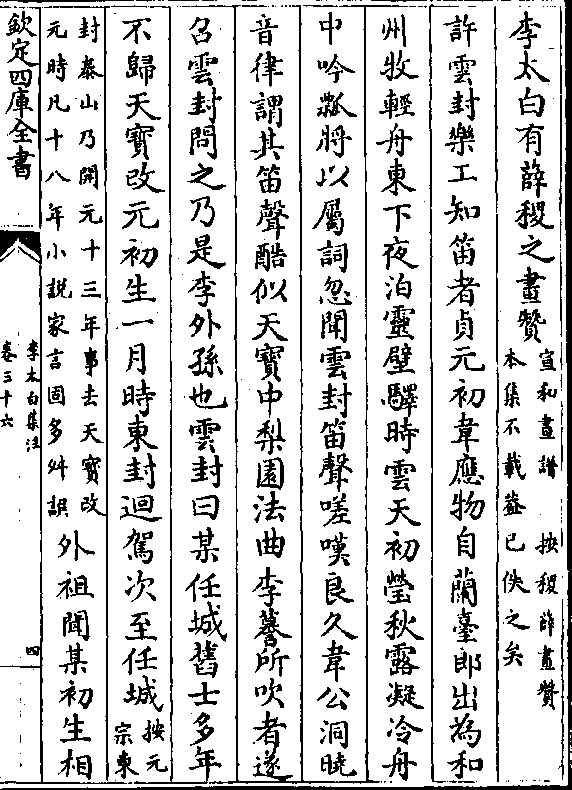 李太白有薛稷之畫贊宣和畫譜 按稷薛畫贊
本集不載蓋已佚之矣
許雲封樂工知笛者貞元初韋應物自蘭臺郎出為和
州牧輕舟東下夜泊靈壁驛時雲天初瑩秋露凝冷舟
中吟瓢將以屬詞忽聞雲封笛聲嗟嘆良久韋公洞曉
音律謂其笛聲酷似天寶中梨園法曲李謩所吹者遂
召雲封問之乃是李外孫也雲封曰某任城舊士多年
不歸天寶改元初生一月時東封迴駕次至任城按元
宗東
封泰山乃開元十三年事去天寶改
元時凡十八年小說家言固多舛誤外祖聞某初生相
欽定四庫全書
李太白集注
卷三十六
四